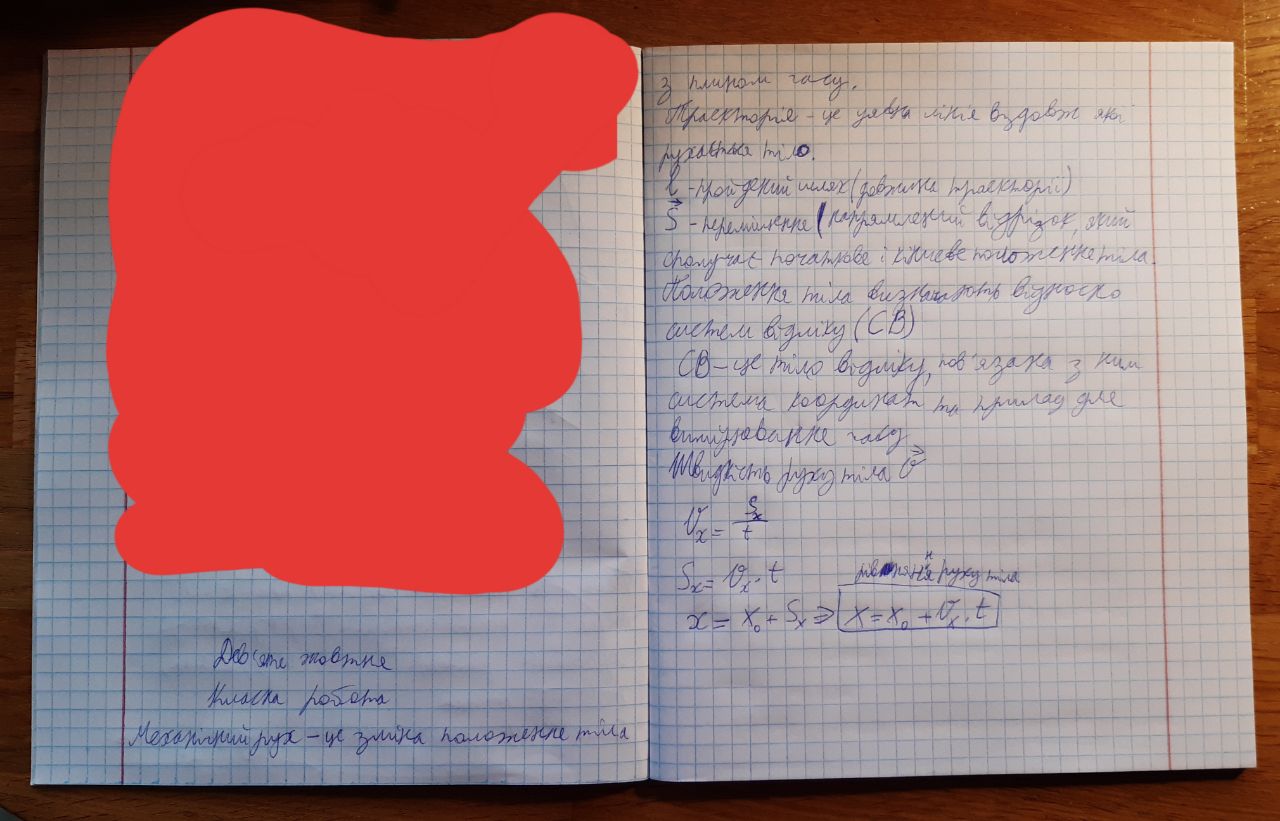 Дев'яте жовтня
Класна робота
Механічний рух – це зміна положення тіла
з плином часу.
Траєкторія – це уявна лінія вздовж якої
рухається тіло.
l - пройдений шлях (довжина траєкторії)
S⃗ - переміщення (напрямлений відрізок, який
сполучає початкове і кінцеве положення тіла.
Положення тіла визначають відносно
систем відліку (СВ)
СВ – це тіло відліку, пов'язана з ним
система координат та прилад для
вимірювання часу
Швидкість руху тіла v⃗
vₓ = Sₓ/t
Sₓ = vₓ · t
рівняння руху тіла
x = x₀ + Sₓ ⇒ x = x₀ + vₓ · t